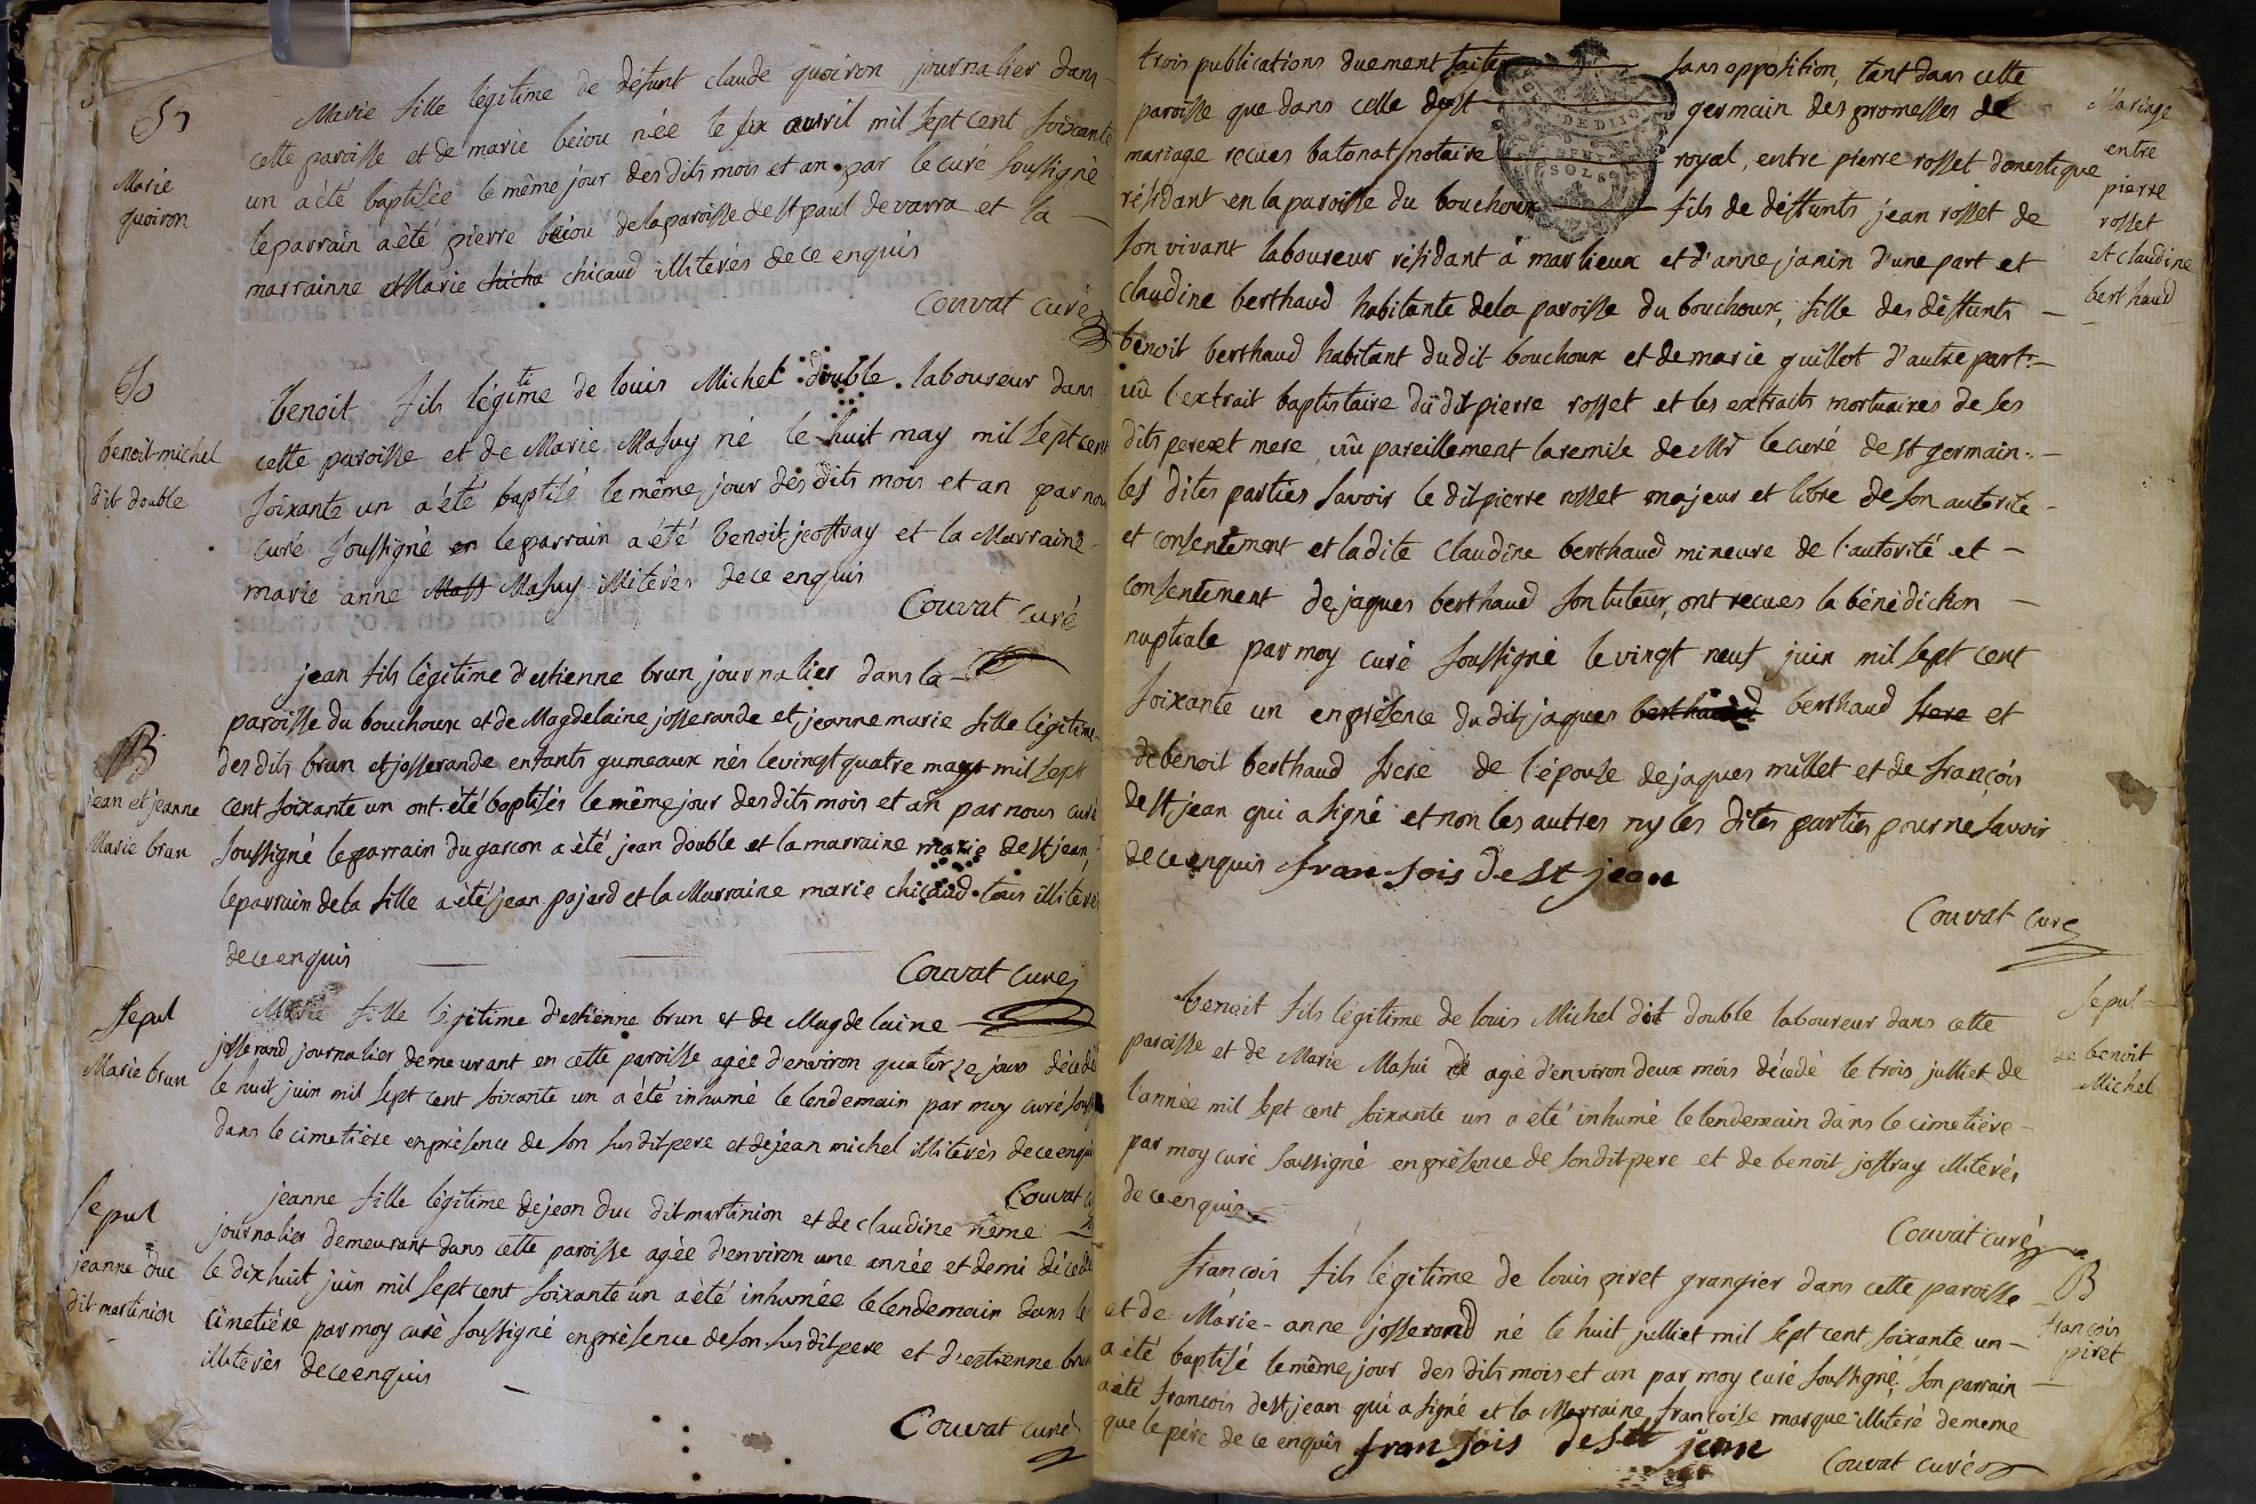 Marie fille légitime de défunt claude quoiron journalier dans
cette paroisse et de marie béiou née le six avvril mil sept cent soixante
un a été baptisée le même jour des dits mois et an par le curé soussigné
le parrain a été pierre béiou de la paroisse de st paul de varra et la
marrainne et Marie chicha chicaud illiterés de ce enquis
Couvat curé
Marie
quoiron
benoit fils légitime de louis Michel double laboureur dans
cette paroisse et de Marie Masuy né le huit may mil sept cent
soixante un a été baptisé le même jour des dits mois et an par nou
curé soussigné en le parrain a été benoit jeoffray et la Marraine
marie anne Mass Masuy illiterés de ce enquis
Couvat curé
benoit michel
dit double
jean fils légitime d'estienne brun journalier dans la
paroisse du bouchoux et de Magdelaine josserande et jeanne marie fille légitime
des dits brun et josserande enfants gumeaux nés le vingt quatre may mil sept
cent soixante un ont été baptisés le même jour des dits mois et an par nous curé
soussigné le parrain du garcon a été jean double et la marraine marie de st jean,
le parrain de la fille a été jean pajard et la Marraine marie chicaud tous illiterés
de ce enquis
Couvat curé
B
jean et jeanne
Marie brun
Marie fille légitime d'estienne brun et de Magdelaine
josserand journalier demeurant en cette paroisse agée d'environ quatorze jours décedé
le huit juin mil sept cent soixante un a été inhumé le lendemain par moy curé souss
dans le cimetière en présence de son susdit pere et de jean michel illiterés de ce enqui
Couvat c
sepul
Marie brun
jeanne fille légitime de jean duc dit martinion et de claudine nême
journalier demeurant dans cette paroisse agée d'environ une année et demi décedé
le dix huit juin mil sept cent soixante un a été inhumée le lendemain dans le
cimetière par moy curé soussigné en présence de son susdit pere et d'estienne brun
illiterés de ce enquis
Couvat curé
sepul
jeanne duc
dit martinion
trois publications duement faites sans opposition, tant dans cette
paroisse que dans celle de st germain des promesses de
mariage recues batonat notaire royal, entre pierre rosset domestique
résidant en la paroisse du bouchoux fils de deffunts jean rosset de
son vivant laboureur résidant à marlieux et d'anne janin d'une part et
claudine berthaud habitante de la paroisse du bouchoux, fille des deffunts
benoit berthaud habitant du dit bouchoux et de marie guillot d'autre part
vû l'extrait baptistaire du dit pierre rosset et les extraits mortuaires de ses
dits pere et mere vû pareillement la remise de Mr le curé de st germain
les dites parties savoir le dit pierre rosset majeur et libre de son autorite
et consentement et ladite claudine berthaud mineure de l'autorité et
consentement de jaques berthaud son tuteur, ont recues la bénédiction
nuptiale par moy curé soussigné le vingt neuf juin mil sept cent
soixante un en présence du dit jaques berthaud berthaud frere et
de benoit berthaud frere de l'épouse de jaques millet et de françois
de st jean qui a signé et non les autres ny les dites parties pour ne savoir
de ce enquis fransois de st jean
Couvat curé
Mariage
entre
pierre
rosset
et claudine
berthaud
benoit fils légitime de louis Michel dit double laboureur dans cette
paroisse et de Marie Masui agé d'environ deux mois décedé le trois julliet de
l'année mil sept cent soixante un a été inhumé le lendemain dans le cimetière
par moy curé soussigné en présence de son dit pere et de benoit joffray illiterés
de ce enquis
Couvat curé
sepul
de benoit
Michel
françois fils légitime de louis piret grangier dans cette paroisse
et de Marie-anne josserand né le huit julliet mil sept cent soixante un
a été baptisé le même jour des dits mois et an par moy curé soussigné son parrain
a été françois de st jean qui a signé et la Marraine françoise marque illiteré de meme
que le père de ce enquis fransois de st jean
Couvat curé
B
françois
piret